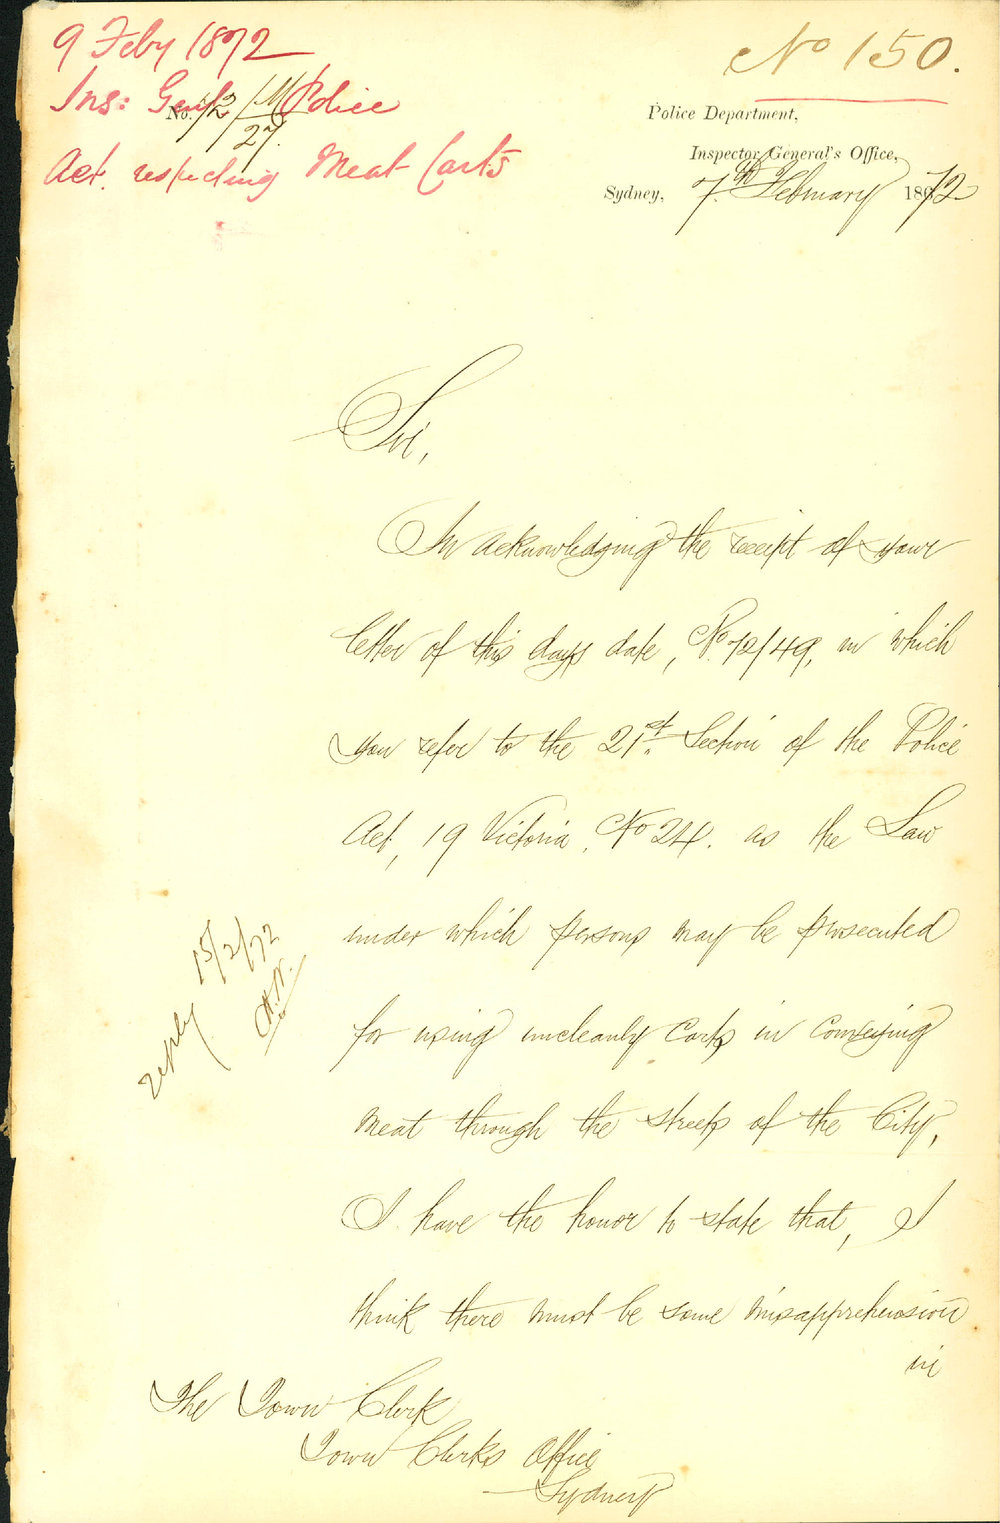 9 Feby 1872
Ins: Genl Police
Act. respecting Meat Carts
No. 150.
No. 72/M
27.
Police Department,
Inspector General's Office,
Sydney, 7th February 1872
Sir,
In acknowledging the receipt of your
letter of this days date, No. 72/49, in which
you refer to the 21st. Section of the Police
Act, 19 Victoria, No 24. as the Law
under which persons may be prosecuted
for using uncleanly carts in conveying
meat through the streets of the City,
I have the honor to state that, I
think there must be some misapprehension
in
reply 15/2/72
The Town Clerk
Town Clerks Office
Sydney